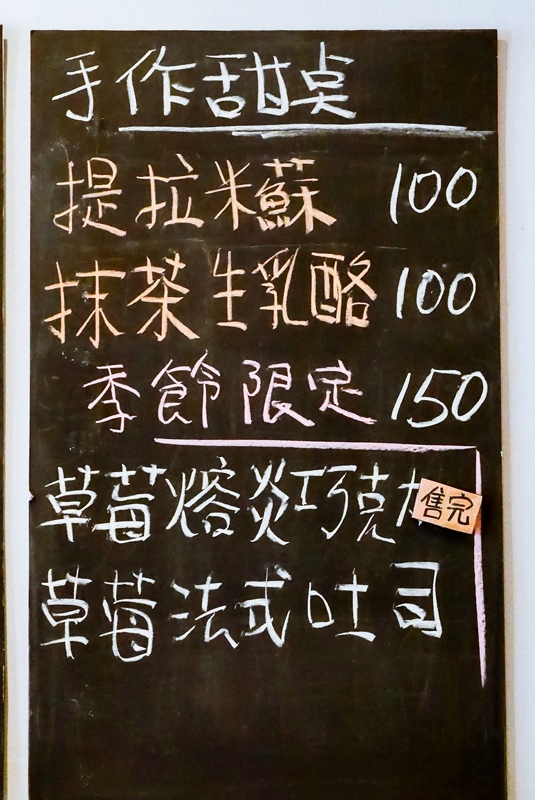 手作甜点
提拉米蘇 100
抹茶生乳酪 100
季節限定 150
草莓熔炎巧克
售完
草莓法式吐司